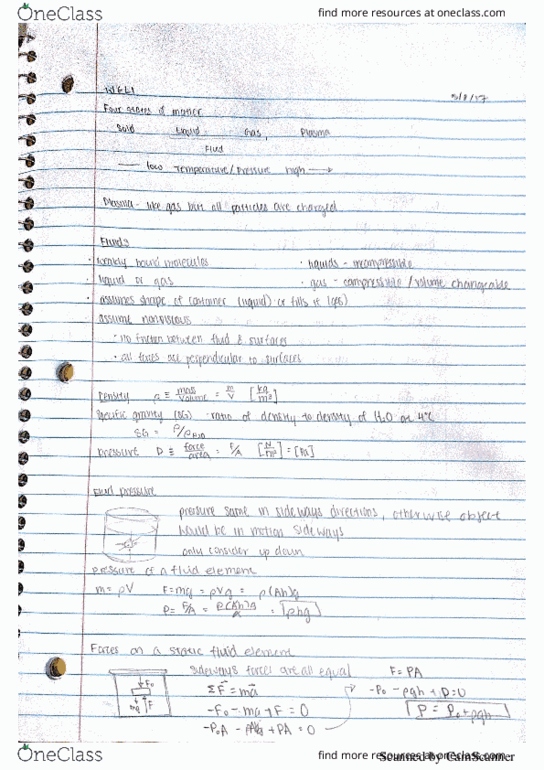 OneClass
find more resources at oneclass.com
WEEK1 5/8/17
Four states of matter
Solid Liquid Gas, Plasma
Fluid
low Temperature/Pressure high →
Plasma - like gas but all particles are charged
Fluids
· weakly bound molecules · liquids - incompressible
· liquid or gas · gas - compressible / volume changeable
· assumes shape of container (liquid) or fills it (gas)
assume nonviscous
· no friction between fluid & surfaces
· all forces are perpendicular to surfaces
Density ρ ≡ mass/volume = m/V [kg/m³]
Specific gravity (SG) ratio of density to density of H₂O at 4°C
SG = ρ/ρH₂O
Pressure P ≡ force/area = F/A [N/m²] = [Pa]
Fluid pressure
pressure same in sideways directions, otherwise object
would be in motion sideways
only consider up down
pressure of a fluid element
m = ρV F=mg = ρVg = ρ(Ah)g
P = F/A = ρ(Ah)g/A = ρhg
Forces on a static fluid element
sideways forces are all equal F = PA
F₀ ΣF = ma -P₀ - ρgh + P = 0
mg F -F₀ - mg + F = 0 P = P₀ + ρgh
-P₀A - ρAhg + PA = 0
OneClass
find more resources at oneclass.com
Scanned by CamScanner